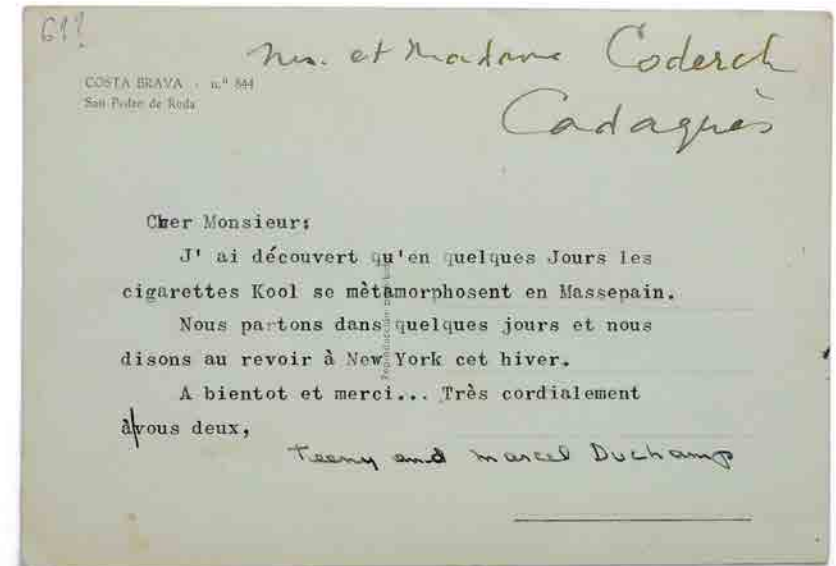 61?
Mr. et Madame Coderch
Cadaquès
COSTA BRAVA - n.º 844
San Pedro de Roda
Cher Monsieur:
J' ai découvert qu'en quelques Jours les
cigarettes Kool se mètamorphosent en Massepain.
Nous partons dans quelques jours et nous
disons au revoir à New York cet hiver.
A bientot et merci... Très cordialement
à vous deux,
Teeny and Marcel Duchamp